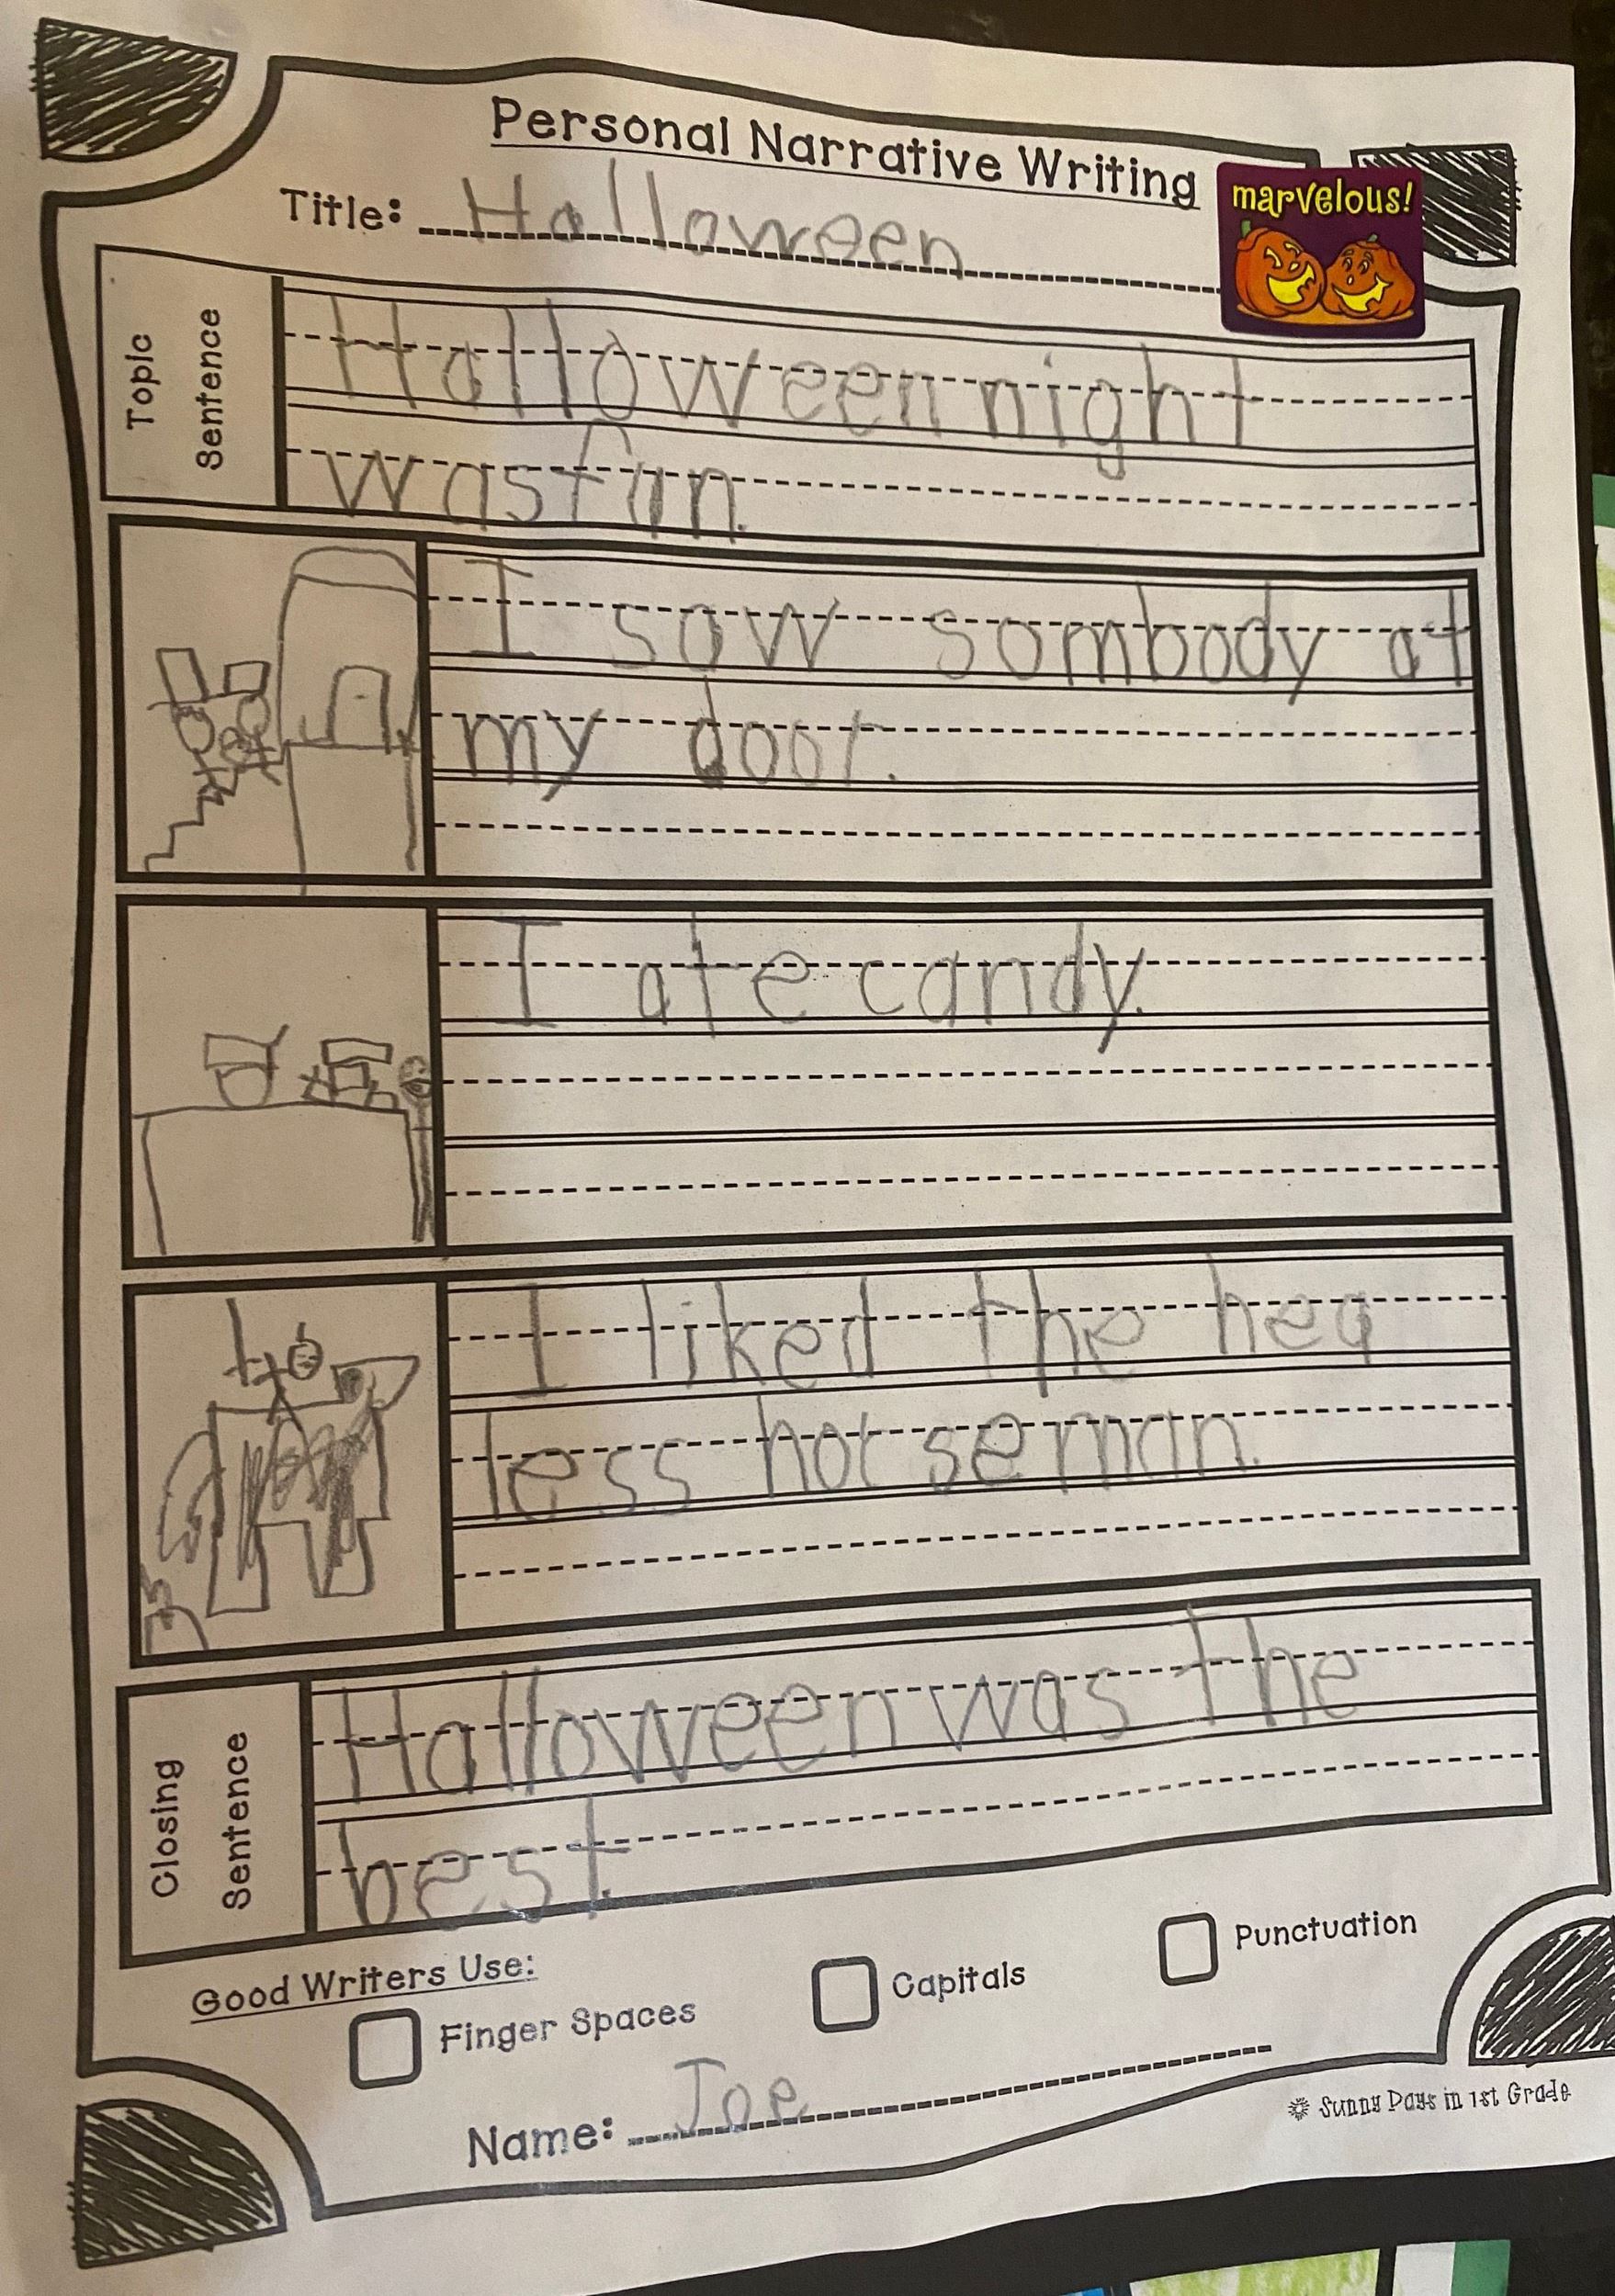 Personal Narrative Writing
marvelous!
Title: Halloween
Topic
Sentence
Halloween night
was fun.
I saw sombody at
my door.
I ate candy.
I liked the hea
less horseman.
Closing
Sentence
Halloween was the
best.
Good Writers Use:
Finger Spaces
Capitals
Punctuation
Name: Joe
Sunny Days in 1st Grade